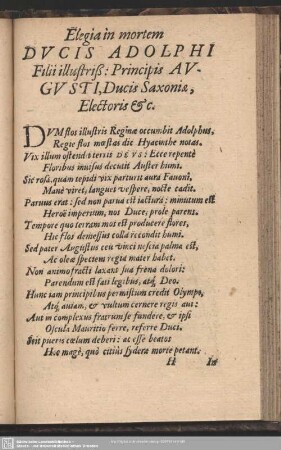 Elegia in mortem
DVCIS ADOLPHI
Filii illustriß: Principis AV-
GVSTI, Ducis Saxoniæ,
Electoris & c.
DVM flos illustris Reginæ occumbit Adolphus,
Regie flos mœstas dic Hyacinthe notas.
Vix illum ostendit terris DEVS: Ecce repentè
Floribus inuisus decutit Auster humi.
Sic rosa, quam tepidi vix parturit aura Fauonî,
Manè viret, languet vespere, nocte cadit.
Paruus erat: sed non parua est iactura: minutum est
Heroë imperium, nos Duce, prole parens.
Tempore quo terram mos est producere flores,
Hic flos demessus colla recondit humi.
Sed pater Augustus ceu vinci nescia palma est,
Ac oleæ spectem regia mater habet.
Non animo fracti laxans sua frena dolori:
Parendum est fati legibus, atq; Deo.
Hunc iam principibus permistum credit Olympo,
Atq; auiam, & vultum cernere regis aui:
Aut in complexus fratrum se fundere, & ipsi
Oscula Mauritio ferre, referre Duci.
Scit pueris cœlum deberi: ac esse beatos
Hæc magè, quò citiùs sydera morte petant.
H In